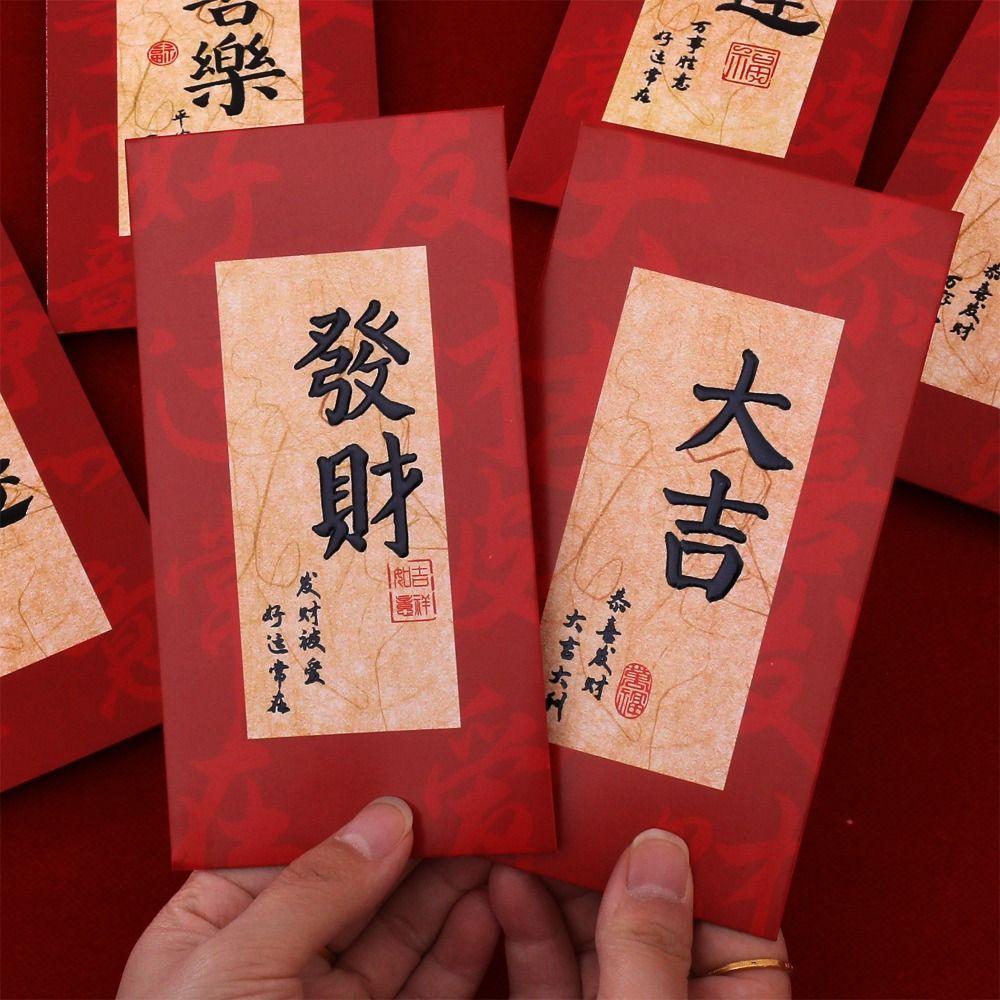 發財
发财被爱
好运常在
吉祥
如意
大吉
恭喜发财
大吉大利
萬福
喜樂
福
平
万事胜意
好运常在
福
恭喜发财